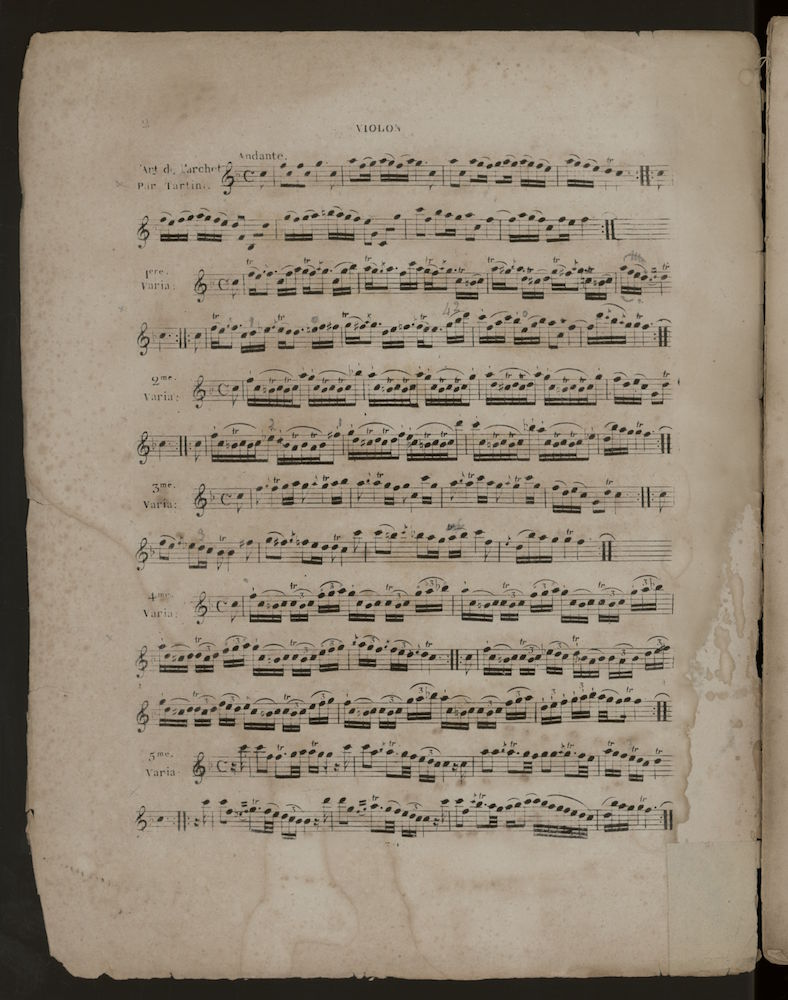 2
VIOLON
Andante.
L'Art de l'archet
Par Tartini.
1ere.
Varia:
42
2me.
Varia:
3me.
Varia:
4me.
Varia:
5me.
Varia: